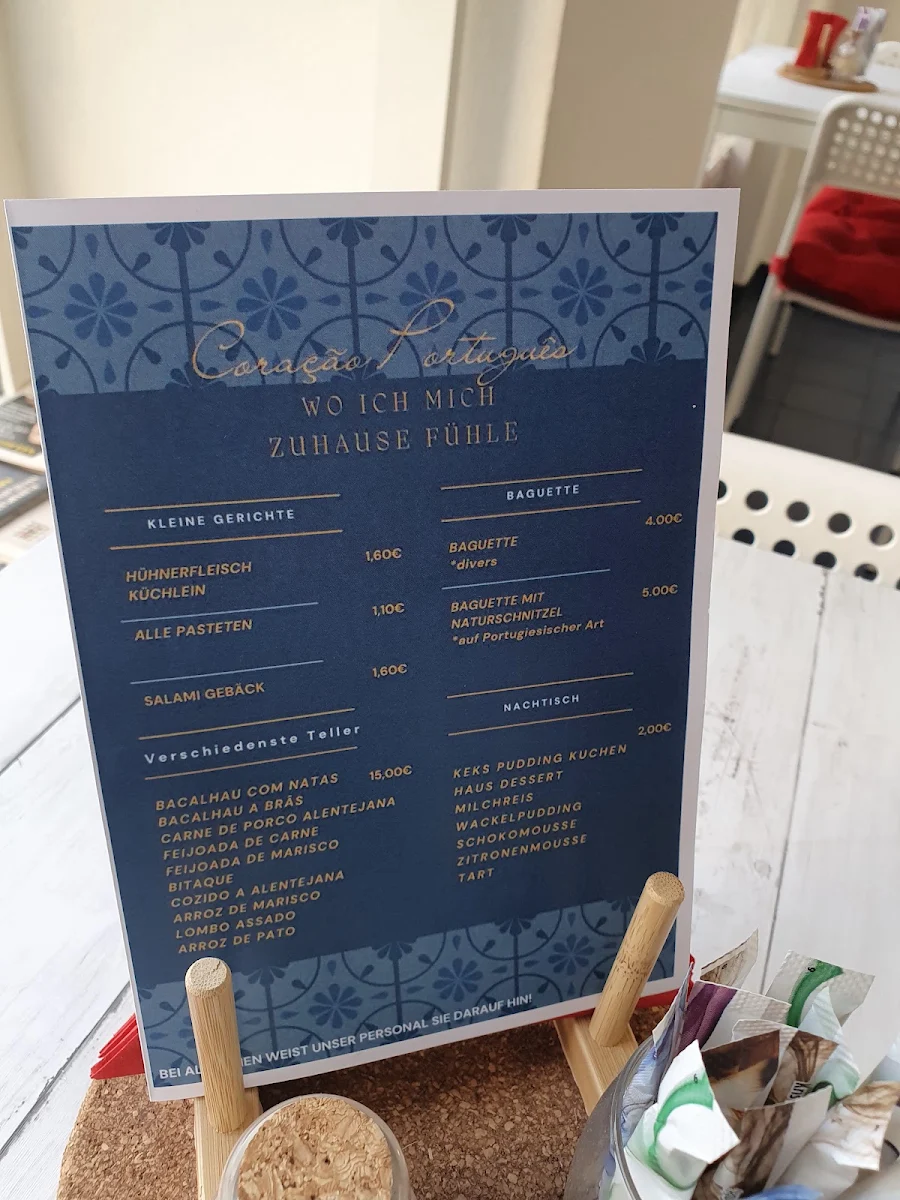 Coração Português
WO ICH MICH
ZUHAUSE FÜHLE
KLEINE GERICHTE
HÜHNERFLEISCH 1,60€
KÜCHLEIN
ALLE PASTETEN 1,10€
SALAMI GEBÄCK 1,60€
Verschiedenste Teller
BACALHAU COM NATAS 15,00€
BACALHAU A BRÁS
CARNE DE PORCO ALENTEJANA
FEIJOADA DE CARNE
FEIJOADA DE MARISCO
BITAQUE
COZIDO A ALENTEJANA
ARROZ DE MARISCO
LOMBO ASSADO
ARROZ DE PATO
BAGUETTE
BAGUETTE 4.00€
*divers
BAGUETTE MIT 5.00€
NATURSCHNITZEL
*auf Portugiesischer Art
NACHTISCH
KEKS PUDDING KUCHEN 2,00€
HAUS DESSERT
MILCHREIS
WACKELPUDDING
SCHOKOMOUSSE
ZITRONENMOUSSE
TART
BEI WEIST UNSER PERSONAL SIE DARAUF HIN!